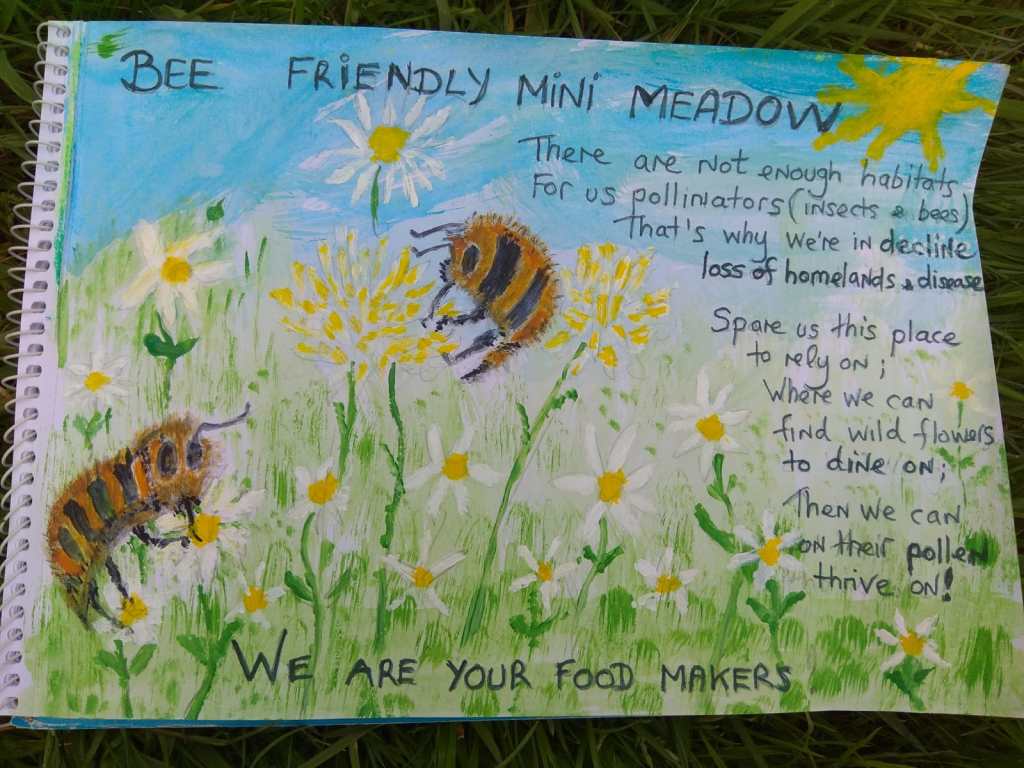 BEE FRIENDLY MINI MEADOW
There are not enough habitats
For us polliniators (insects & bees)
That's why we're in decline
loss of homelands & disease
Spare us this place
to rely on;
Where we can
find wild flowers
to dine on;
Then we can
on their pollen
thrive on!
WE ARE YOUR FOOD MAKERS